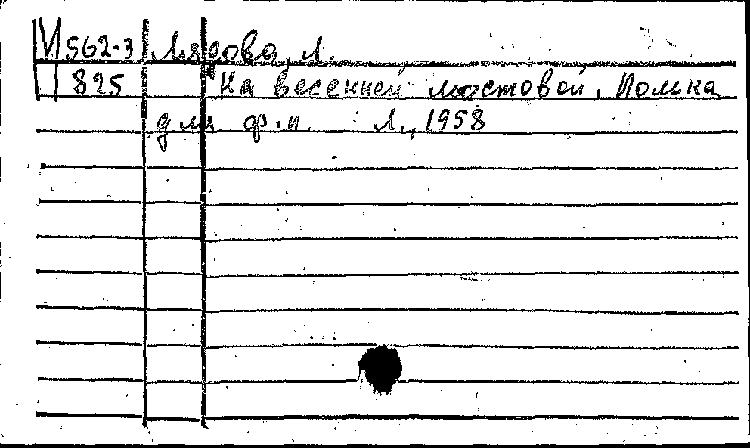 М 562-3 Лядова, Л.
825 На весенней мостовой. Полька
для ф.п. Л., 1958